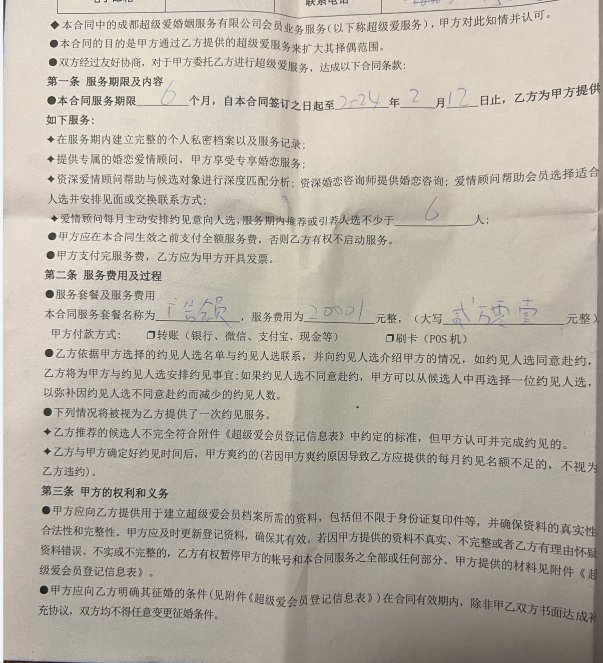 ◆本合同中的成都超级爱婚姻服务有限公司会员业务服务(以下称超级爱服务)，甲方对此知情并认可。
●本合同的目的是甲方通过乙方提供的超级爱服务来扩大其择偶范围。
●双方经过友好协商，对于甲方委托乙方进行超级爱服务，达成以下合同条款:
第一条 服务期限及内容
●本合同服务期限 6 个月，自本合同签订之日起至 2024 年 2 月 12 日止，乙方为甲方提供
如下服务:
◆在服务期内建立完整的个人私密档案以及服务记录;
◆提供专属的婚恋爱情顾问，甲方享受专享婚恋服务;
◆资深爱情顾问帮助与候选对象进行深度匹配分析; 资深婚恋咨询师提供婚恋咨询; 爱情顾问帮助会员选择适合
人选并安排见面或交换联系方式;
◆爱情顾问每月主动安排约见意向人选,服务期内推荐或引荐人选不少于 6 人;
●甲方应在本合同生效之前支付全额服务费，否则乙方有权不启动服务。
●甲方支付完服务费，乙方应为甲方开具发票。
第二条 服务费用及过程
●服务套餐及服务费用
本合同服务套餐名称为 ，服务费用为 20001 元整，(大写 贰万零壹 元整)
甲方付款方式: 口转账（银行、微信、支付宝、现金等） 口刷卡（POS 机）
●乙方依据甲方选择的约见人选名单与约见人选联系，并向约见人选介绍甲方的情况，如约见人选同意赴约，
乙方将为甲方与约见人选安排约见事宜;如果约见人选不同意赴约，甲方可以从候选人中再选择一位约见人选，
以弥补因约见人选不同意赴约而减少的约见人数。
●下列情况将被视为乙方提供了一次约见服务。
◆乙方推荐的候选人不完全符合附件《超级爱会员登记信息表》中约定的标准，但甲方认可并完成约见的。
◆乙方与甲方确定好约见时间后，甲方爽约的(若因甲方爽约原因导致乙方应提供的每月约见名额不足的，不视为
乙方违约)。
第三条 甲方的权利和义务
●甲方应向乙方提供用于建立超级爱会员档案所需的资料，包括但不限于身份证复印件等，并确保资料的真实性
合法性和完整性。甲方应及时更新登记资料，确保其有效。若因甲方提供的资料不真实、不完整或者乙方有理由怀疑
资料错误、不实或不完整的，乙方有权暂停甲方的帐号和本合同服务之全部或任何部分。甲方提供的材料见附件《超
级爱会员登记信息表》。
●甲方应向乙方明确其征婚的条件(见附件《超级爱会员登记信息表》)在合同有效期内，除非甲乙双方书面达成补
充协议，双方均不得任意变更征婚条件。